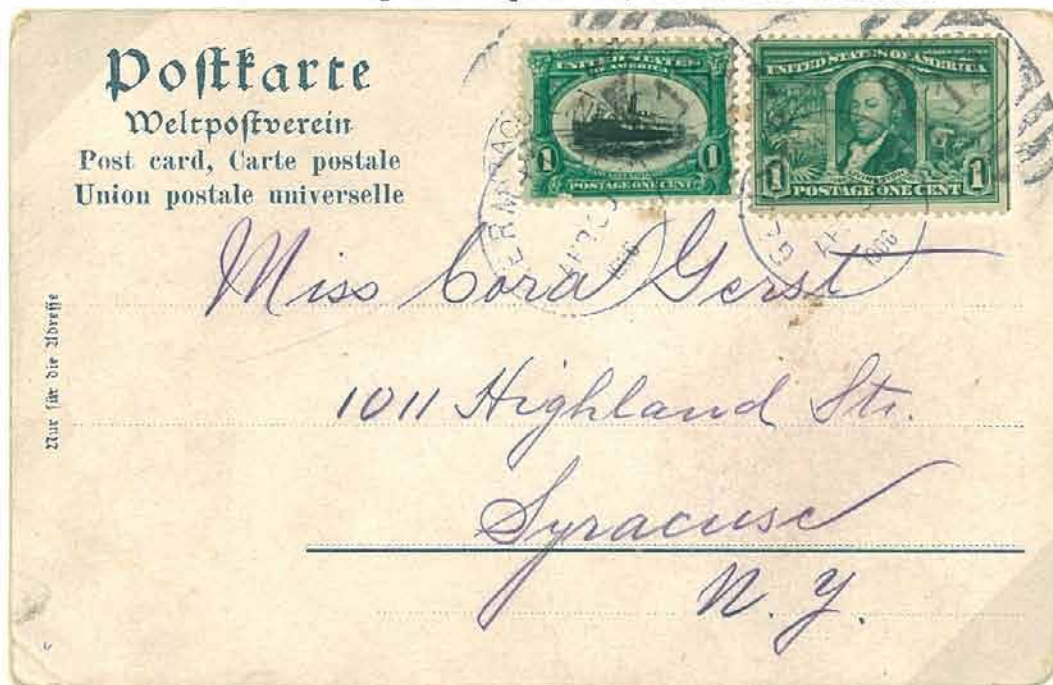 Postkarte
Weltpostverein
Post card, Carte postale
Union postale universelle
UNITED STATES
OF AMERICA
1 1
POSTAGE ONE CENT
UNITED STATES OF AMERICA
1 1
POSTAGE ONE CENT
APR
1906
1906
Miss Cora Gerst
1011 Highland Str.
Syracuse
N. Y.
Nur für die Adresse